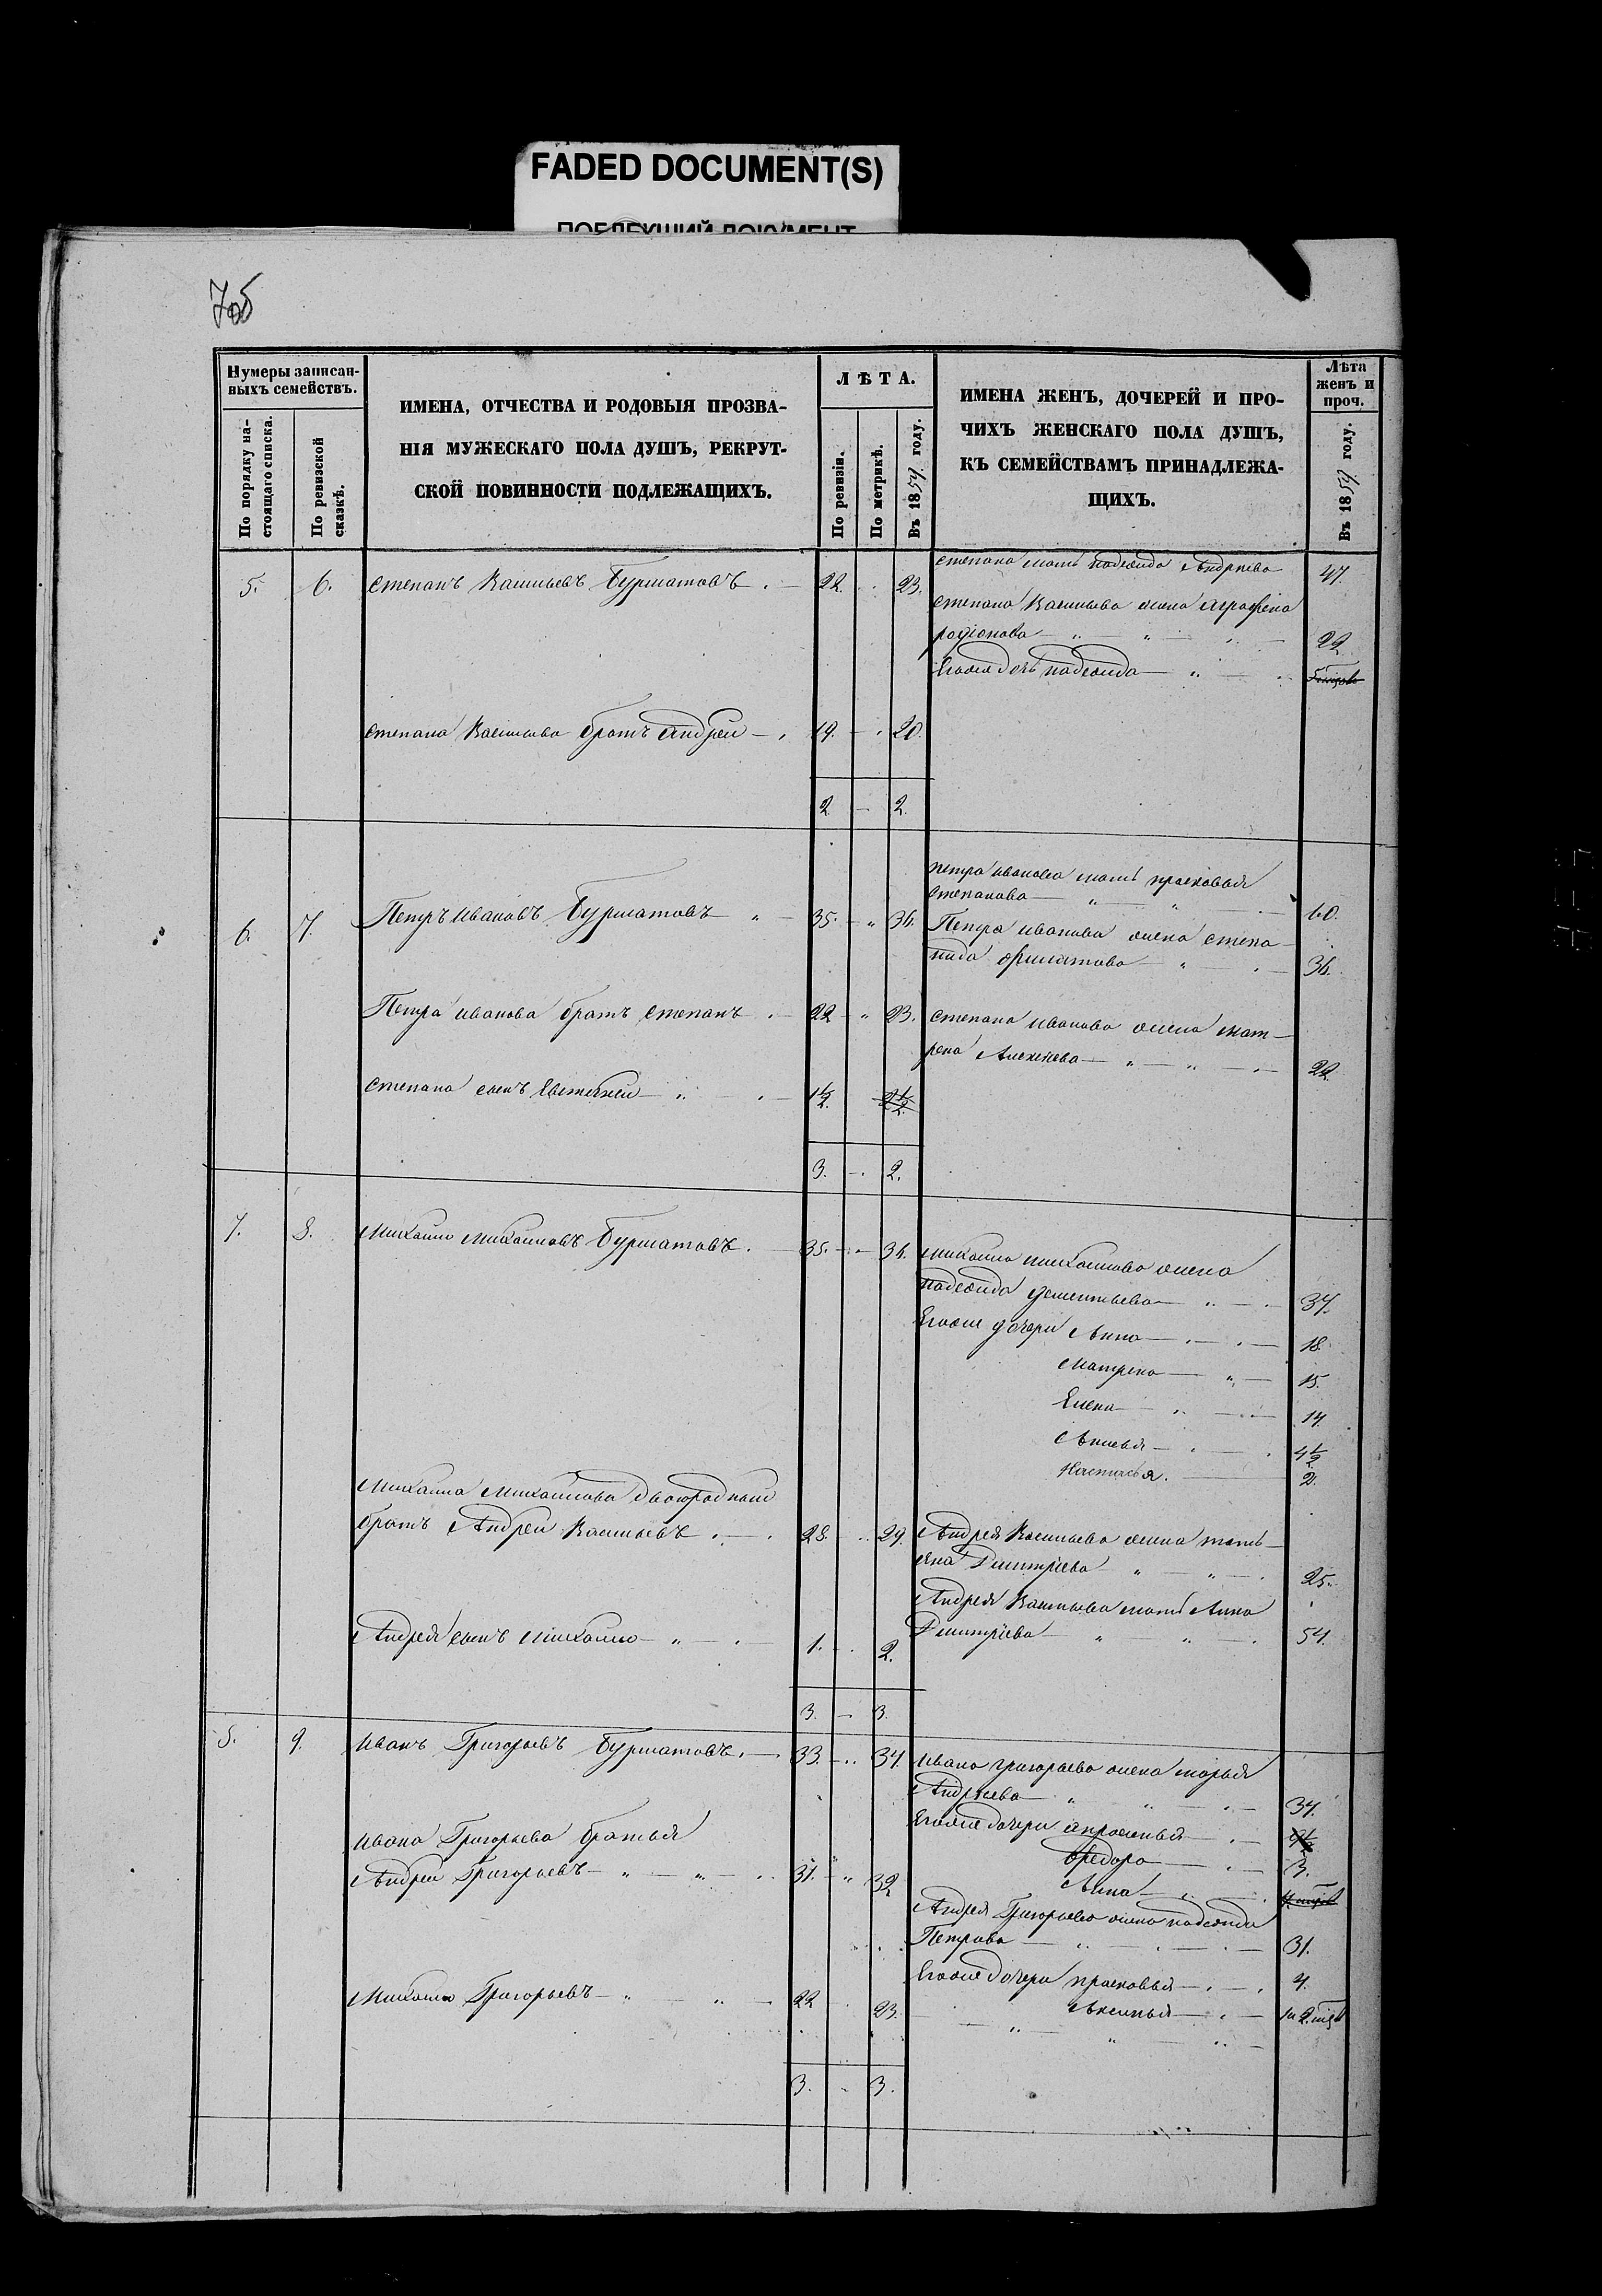 FADED DOCUMENT(S)
ПОБЛЕКШИЙ ДОКУМЕНТ
70об
Нумеры записан-
ныхъ семействъ.
По порядку на-
стоящаго списка.
По ревизской
сказкѣ.
ИМЕНА, ОТЧЕСТВА И РОДОВЫЯ ПРОЗВА-
НІЯ МУЖЕСКАГО ПОЛА ДУШЪ, РЕКРУТ-
СКОЙ ПОВИННОСТИ ПОДЛЕЖАЩИХЪ.
ЛѢТА.
По ревизіи.
По метрикѣ.
Въ 1859 году.
ИМЕНА ЖЕНЪ, ДОЧЕРЕЙ И ПРО-
ЧИХЪ ЖЕНСКАГО ПОЛА ДУШЪ,
КЪ СЕМЕЙСТВАМЪ ПРИНАДЛЕЖА-
ЩИХЪ.
Лѣта
женъ и
проч.
Въ 1859 году.
5. 6. Степанъ Васильевъ Бурматовъ 22. 23.
Степана мать надежда Андреева 47.
Степана Васильева жена аграфена
родіонова 22
Егоже дочь надежда
Степана Васильева братъ Андрей 19. 20.
2 — 2.
6. 7. Петръ Ивановъ Бурматовъ 35. 36.
Петра иванова мать прасковья
степанова 60.
Петра иванова жена степа-
нида филатова 36.
Петра иванова братъ степанъ 22 23.
Степана иванова жена мат-
рена Алексеева 22
Степана сынъ Евстегней 1½ 2½
3. — 2.
7. 8. Михайло Михайловъ Бурматовъ. 35. 36.
Михаила михайлова жена
надежда дементьева 37.
Егоже дочери Анна 18.
Матрена 15.
Елена 14.
4½
Настасья. 2.
Михаила Михайлова двоюродный
братъ Андрей Васильевъ 28 29.
Андрея Васильева жена тать-
яна Дмитріева 25.
Андрея Васильева мать Анна
Дмитріева 54.
Андрея сынъ Михайло 1. 2.
3. — 3.
8. 9. Иванъ Григорьевъ Бурматовъ. 33. 34.
Ивана григорьева жена марья
Андреева 34.
Егоже дочери
Ивана Григорьева братья
Андрей Григорьевъ 31. 32
Федора 3.
Анна
Андрея Григорьева жена надежда
Петрова 31.
Егоже дочери прасковья 4.
Аксинья
Михайло Григорьевъ 22 23.
3. 3.